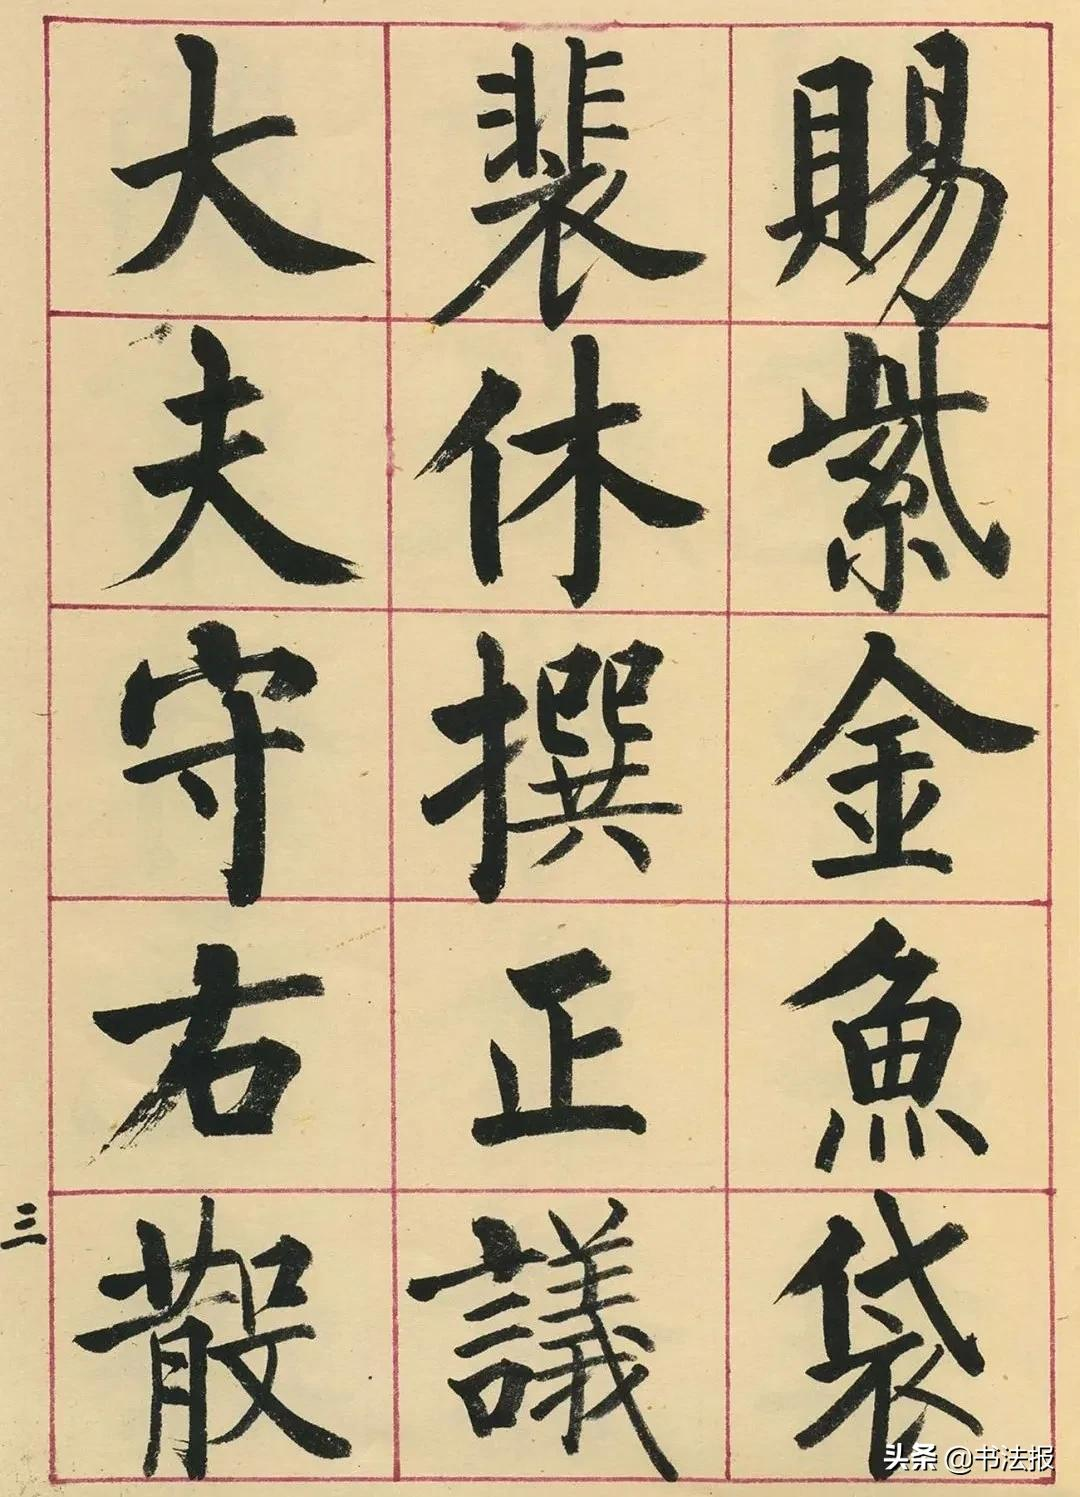 賜紫金魚袋
裴休撰正議
大夫守右散
三
头条 @书法报